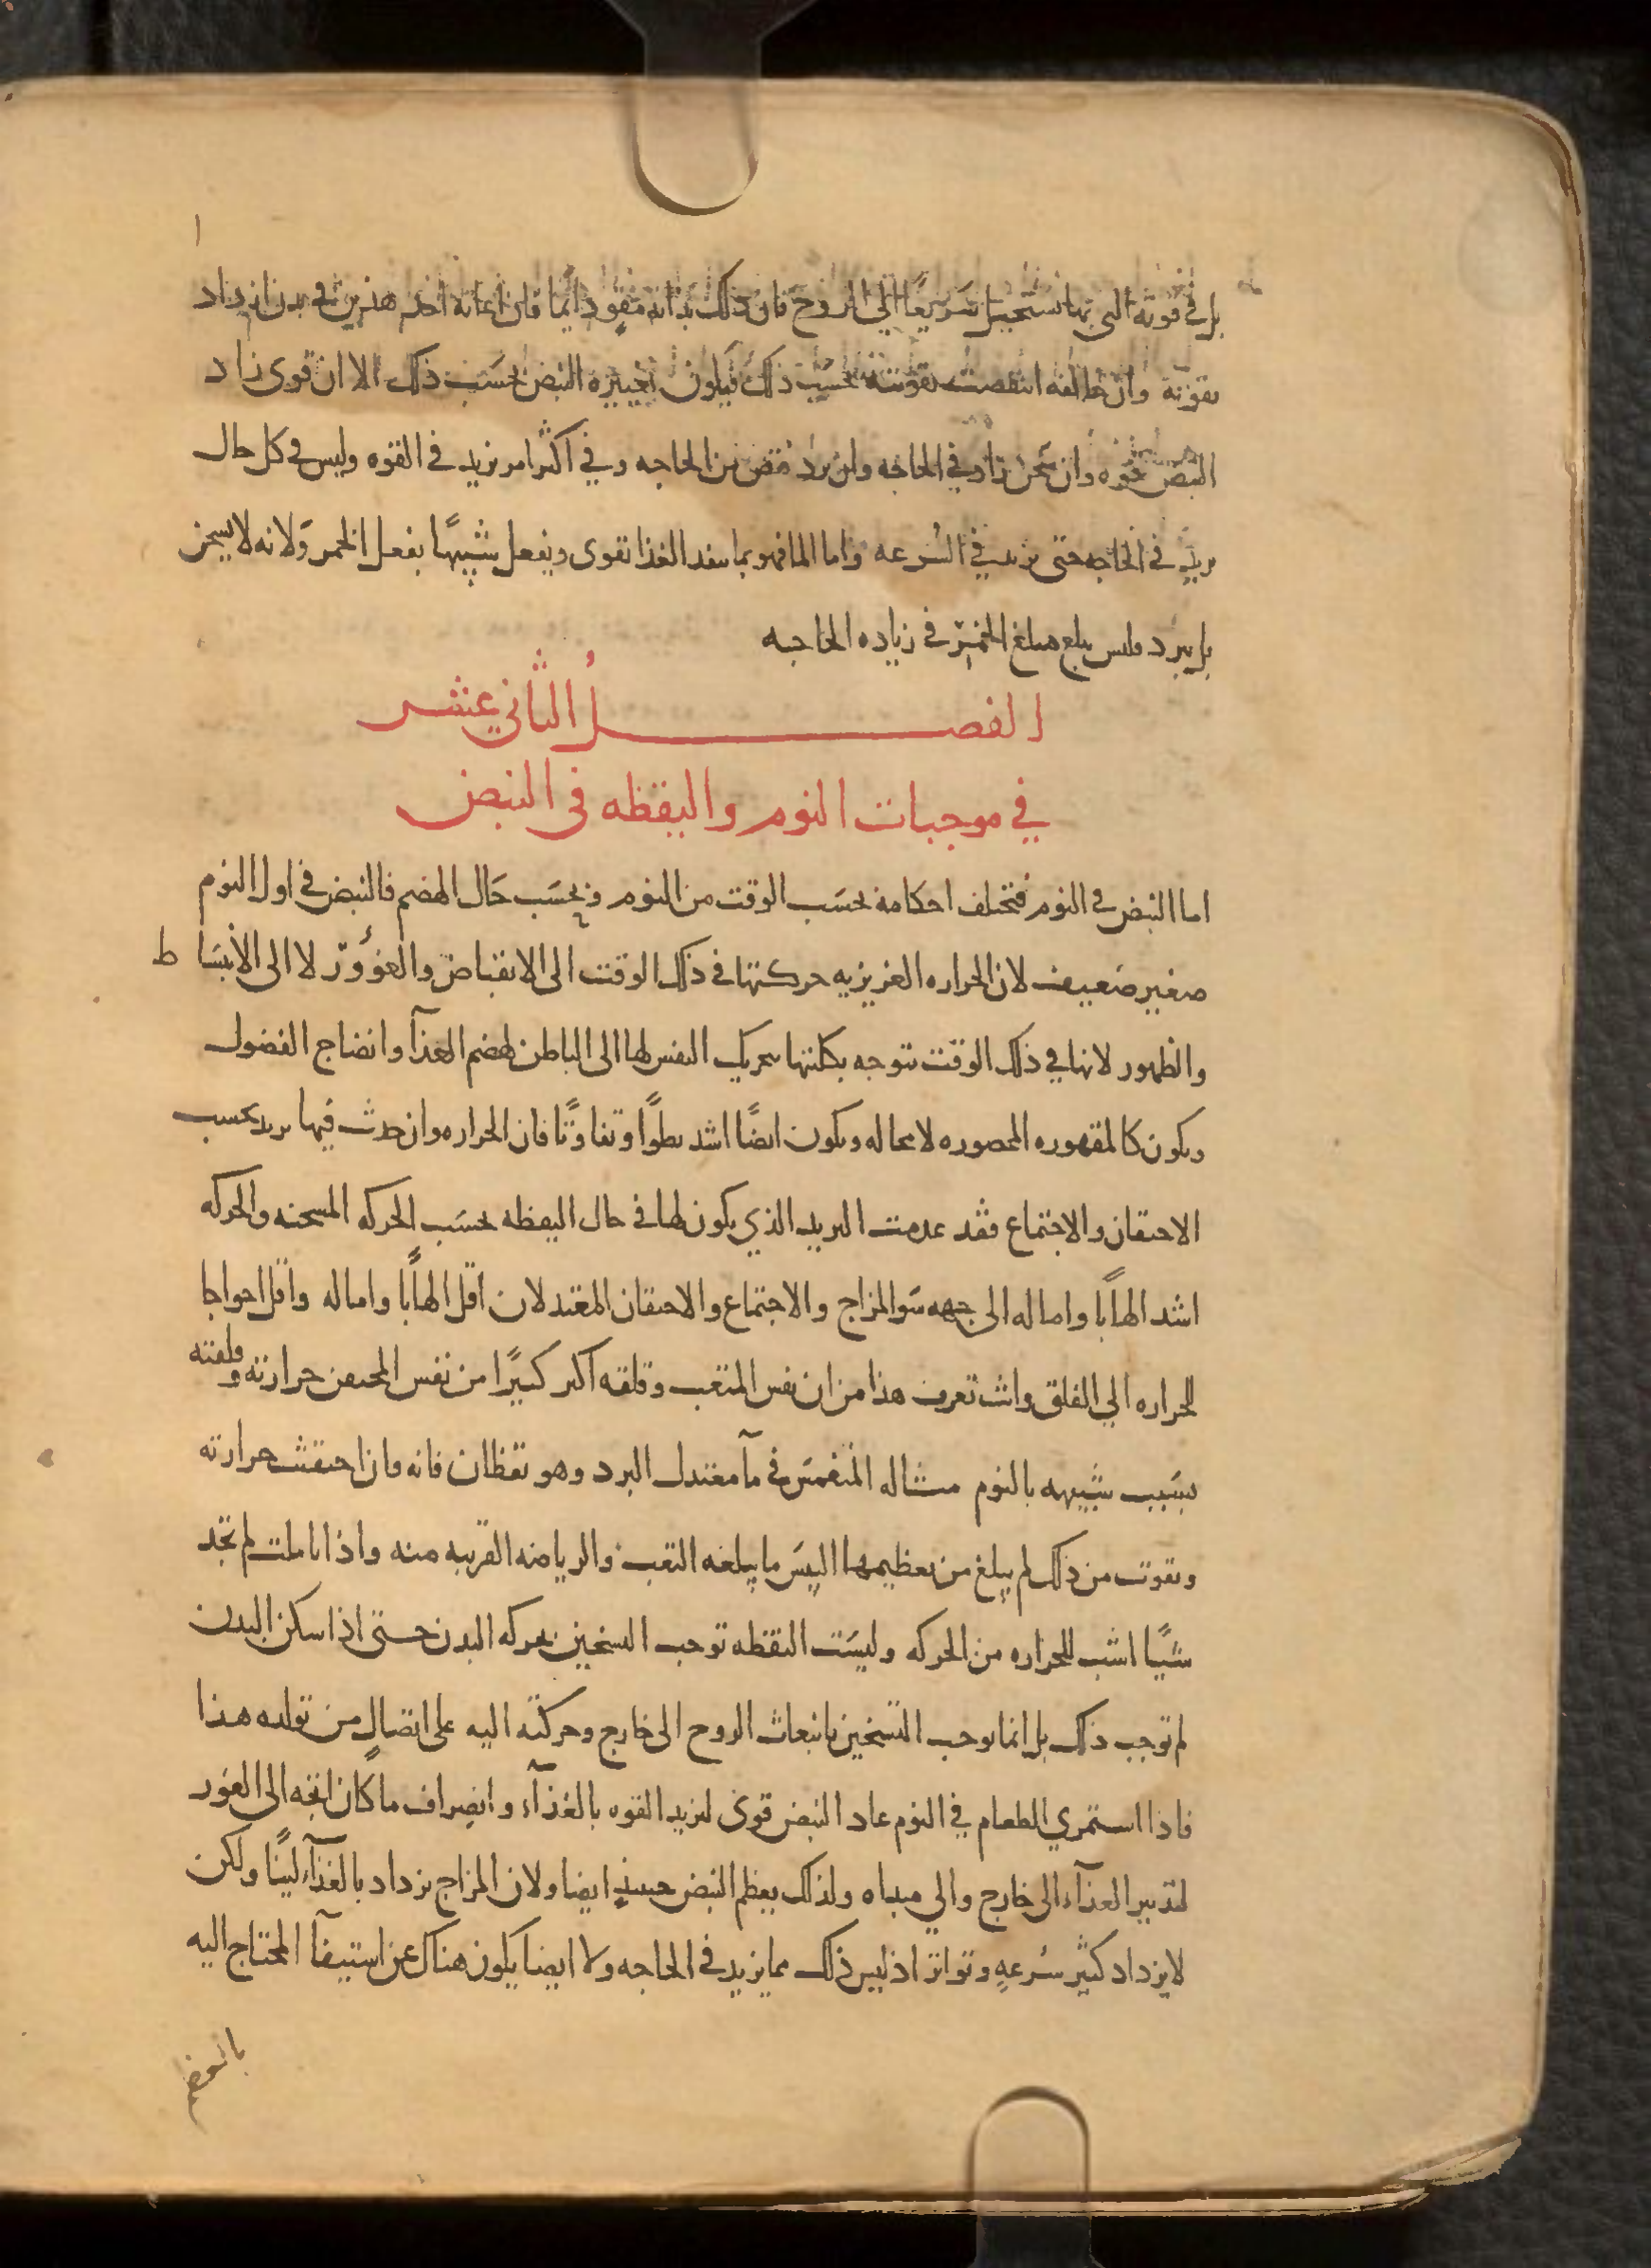 بل في قوته التي بها تستحيل سريعا الى الروح فان ذلك بذاته مقو دايما فان اعانه احد هذين في بدن ازداد
تقويته وان خالفه انتقصت تقويته بحسب ذلك فيكون تغييره النبض بحسب ذلك الا ان قوى زاد
النبض قوه وان سخن زاد في الحاجه وان برد نقص من الحاجه وفي اكثر امر يزيد في القوه وليس في كل حال
يزيد في الحاجه حتى يزيد في السرعه واما الما فهو بما ينفد الغذا تقوى ويفعل شبيهًا بفعل الخمر ولانه لا يسخن
بل يبرد فليس يبلغ مبلغ الخمر في زياده الحاجه
الفصل الثاني عشر
في موجبات النوم واليقظه في النبض
اما النبض في النوم فتختلف احكامه بحسَب الوقت من النوم وبحسَب حَال الهضم فالنبض في اول النوم
صغير ضعيف لان الحراره الغريزيه حركتها في ذلك الوقت الى الانقباض والغوور لا الى الانبسَاط
والظهور لانها في ذلك الوقت تتوجه بكليتها بتحريك النفس لها الى الباطن لهضم الغذآ وانضاج الفضول
ويكون كالمقهوره المحصوره لا محاله ويكون ايضًا اشد بطوًا وتفاوتًا فان الحراره وان حدث فيها تزيد بحسب
الاحتقان والاجتماع فقد عدمت التزيد الذي يكون لها في حال اليقظه بحسَب الحركه المسخنه والحركه
اشد الهابًا واماله الى جهه سَو المزاج والاجتماع والاحتقان المعتدلان اقل الهابًا واماله واقل احواجا
للحراره الي القلق وانت تعرف هذا من ان نفس المتعب وقلقه اكبر كثيرًا من نفس المحتقن حرارته وقلقته
بسَبب شبيهه بالنوم مثاله المنغمس في مآ معتدل البرد وهو يقظان فانه فان احتقنت حرارته
وتقوت من ذلك لم يبلغ من تعظيمها النفَس ما يبلغه التعب والرياضه القريبه منه واذا تاملت لم تجد
شيًا اشب للحراره من الحركه وليسَت اليقظه توجب التسخين بحركه البدن حتى اذا سكن البدن
لم توجب ذلك بل انما توجب التسخين بانبعاث الروح الى خارج وحركته اليه على اتصال من تولده هذا
فاذا استمري الطعام في النوم عاد النبض قوى لتزيد القوه بالغذآ وانصراف ما كان اتجه الى الغور
لتدبير الغذآء الى خارج والي مبداه ولذلك يعظم النبض حينيذ ايضا ولان المزاج يزداد بالغذآء لينًا ولكن
لا يزداد كثير سُرعهٍ وتواتر اذ ليس ذلك مما يزيد في الحاجه ولا ايضا يكون هناك عن استيفآ المحتاج اليه
بالعظم